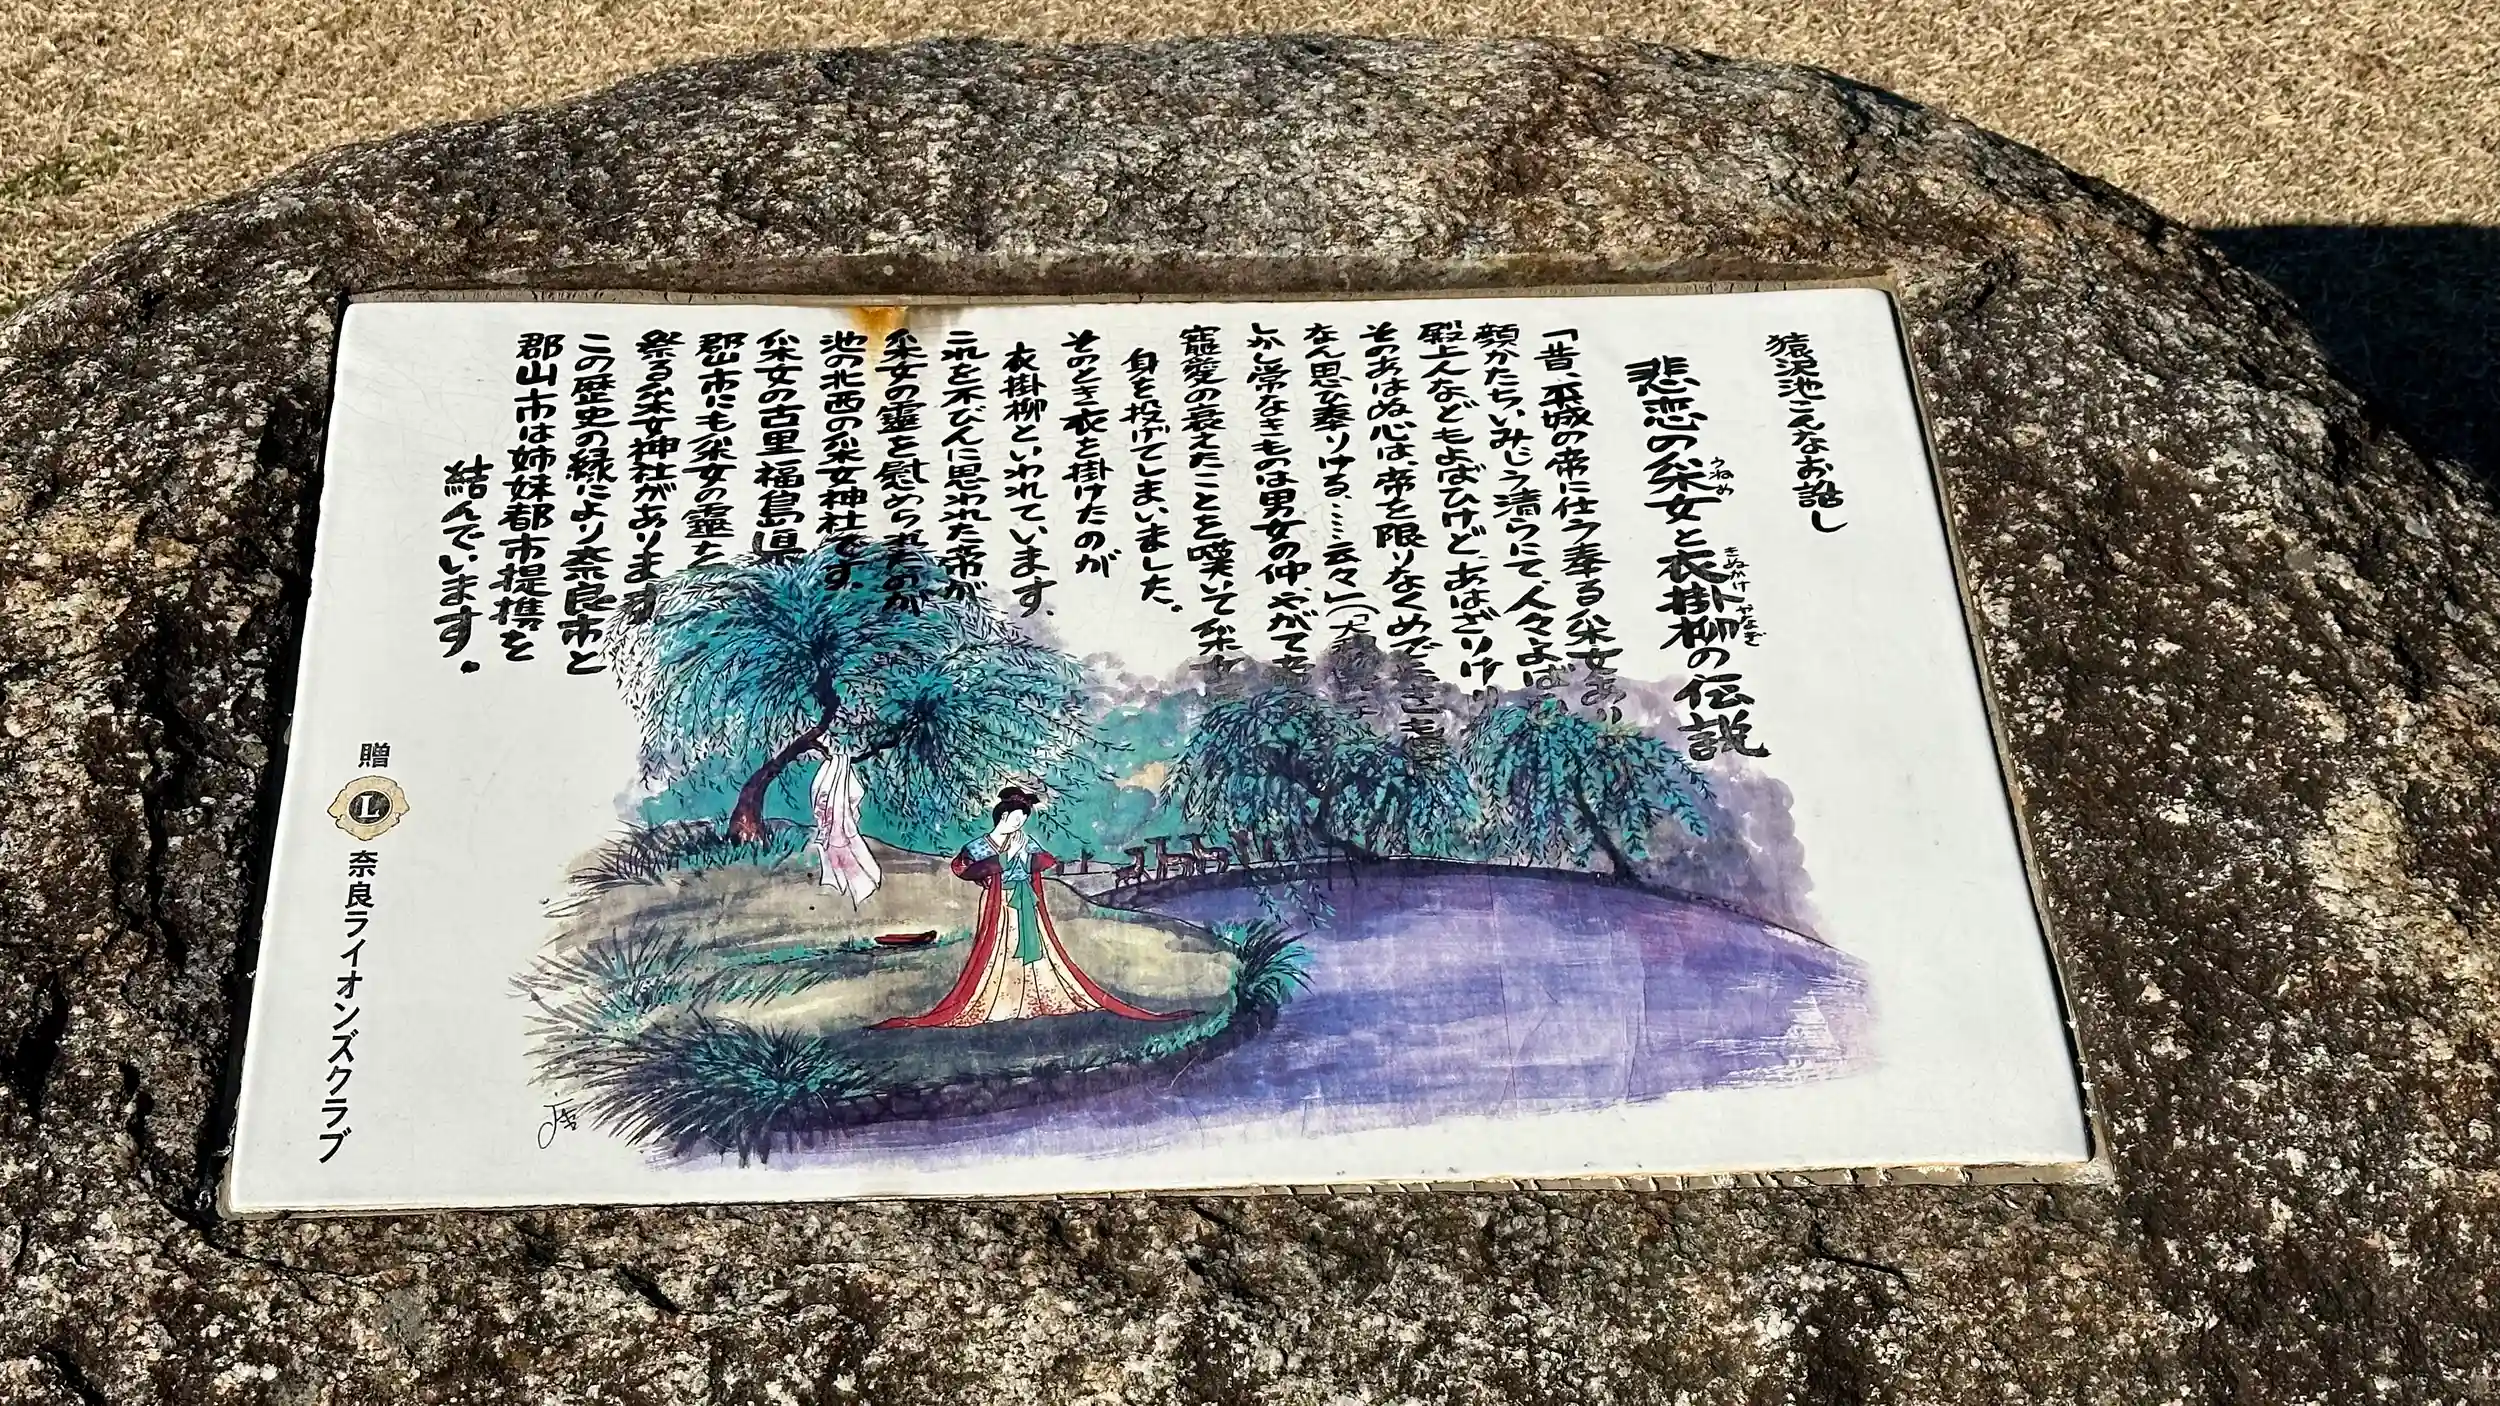 猿沢池こんなお話し
悲恋の采女と衣掛柳の伝説
うねめ
きぬかけ やなぎ
「昔、平城の帝に仕う奉る采女あり
顔かたちいみじう清らにて、人々よば
殿上人などもよばひけど、あはざりけり
そのあはぬ心は、帝を限りなくめでたきも
なん思ひ奉りける……云々」(「大和
しかし常なきものは男女の仲、やがて
寵愛の衰えたことを嘆いて采女
身を投げてしまいました。
そのとき衣を掛けたのが
衣掛柳といわれています。
これを不びんに思われた帝が
采女の靈を慰められたのが
池の北西の采女神社です。
采女の古里福島県
郡山市にも采女の靈を
祭る采女神社があります
この歴史の縁により奈良市と
郡山市は姉妹都市提携を
結んでいます。
贈
L
奈良ライオンズクラブ